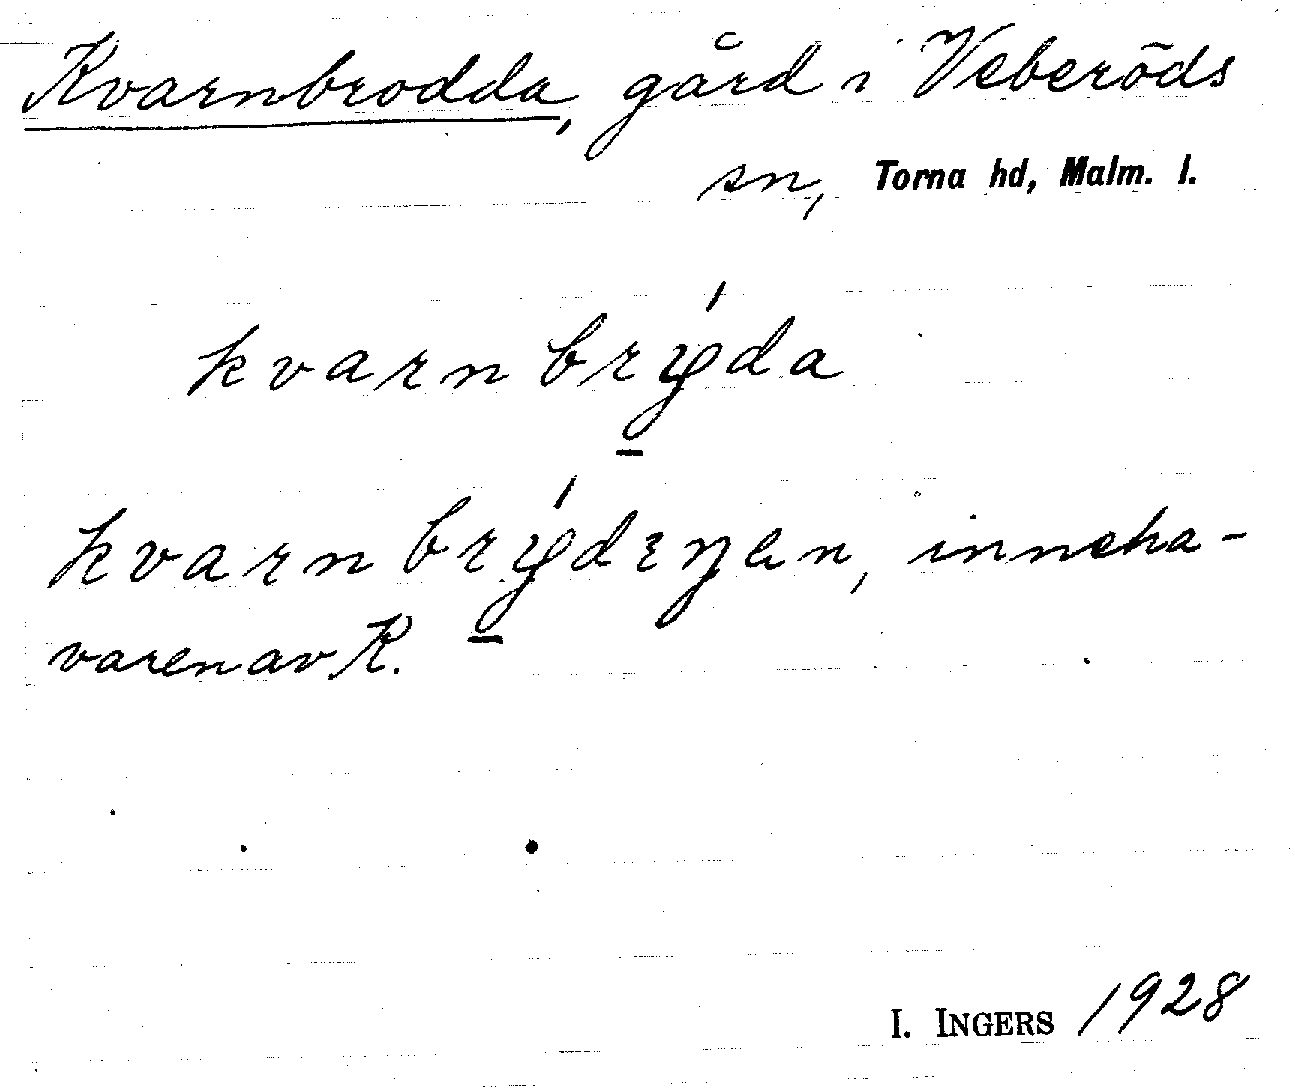 Kvarnbrodda, gård i Veberöds
sn, Torna hd, Malm. l.
kvarnbrýda
kvarnbrýdeŋen, inneha-
varen av K.
I. INGERS 1928